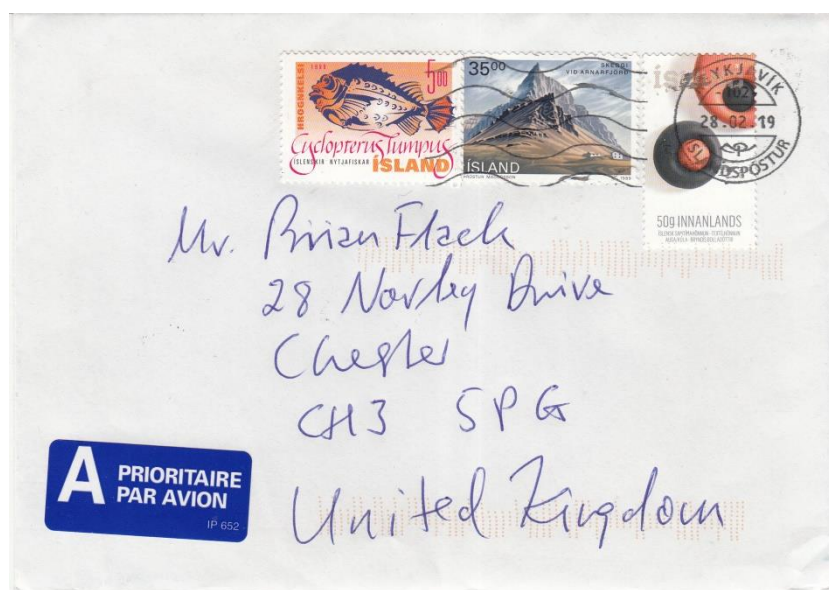 HROGNKELSI
1998
5.00
Cyclopterus lumpus
ÍSLENSKIR NYTJAFISKAR
ÍSLAND
35.00
SKEGGI
VIÐ ARNARFJÖRÐ
ÍSLAND
1989
REYKJAVÍK
28.02.19
ÍSLANDSPÓSTUR
50g INNANLANDS
Mr. Brian Flack
28 Norley Drive
Chester
CH3 5PG
United Kingdom
A PRIORITAIRE
PAR AVION
IP 652